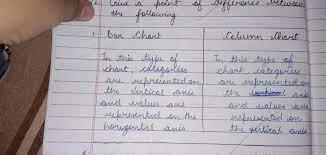 Give a point of difference between
the following
1. Bar Chart Column Chart
In this type of
chart, categories
are represented on
the vertical axis
and values are
represented on the
horizontal axis.
In this type of
chart categories
are represented on
the axis
and values are
represented on
the vertical axis